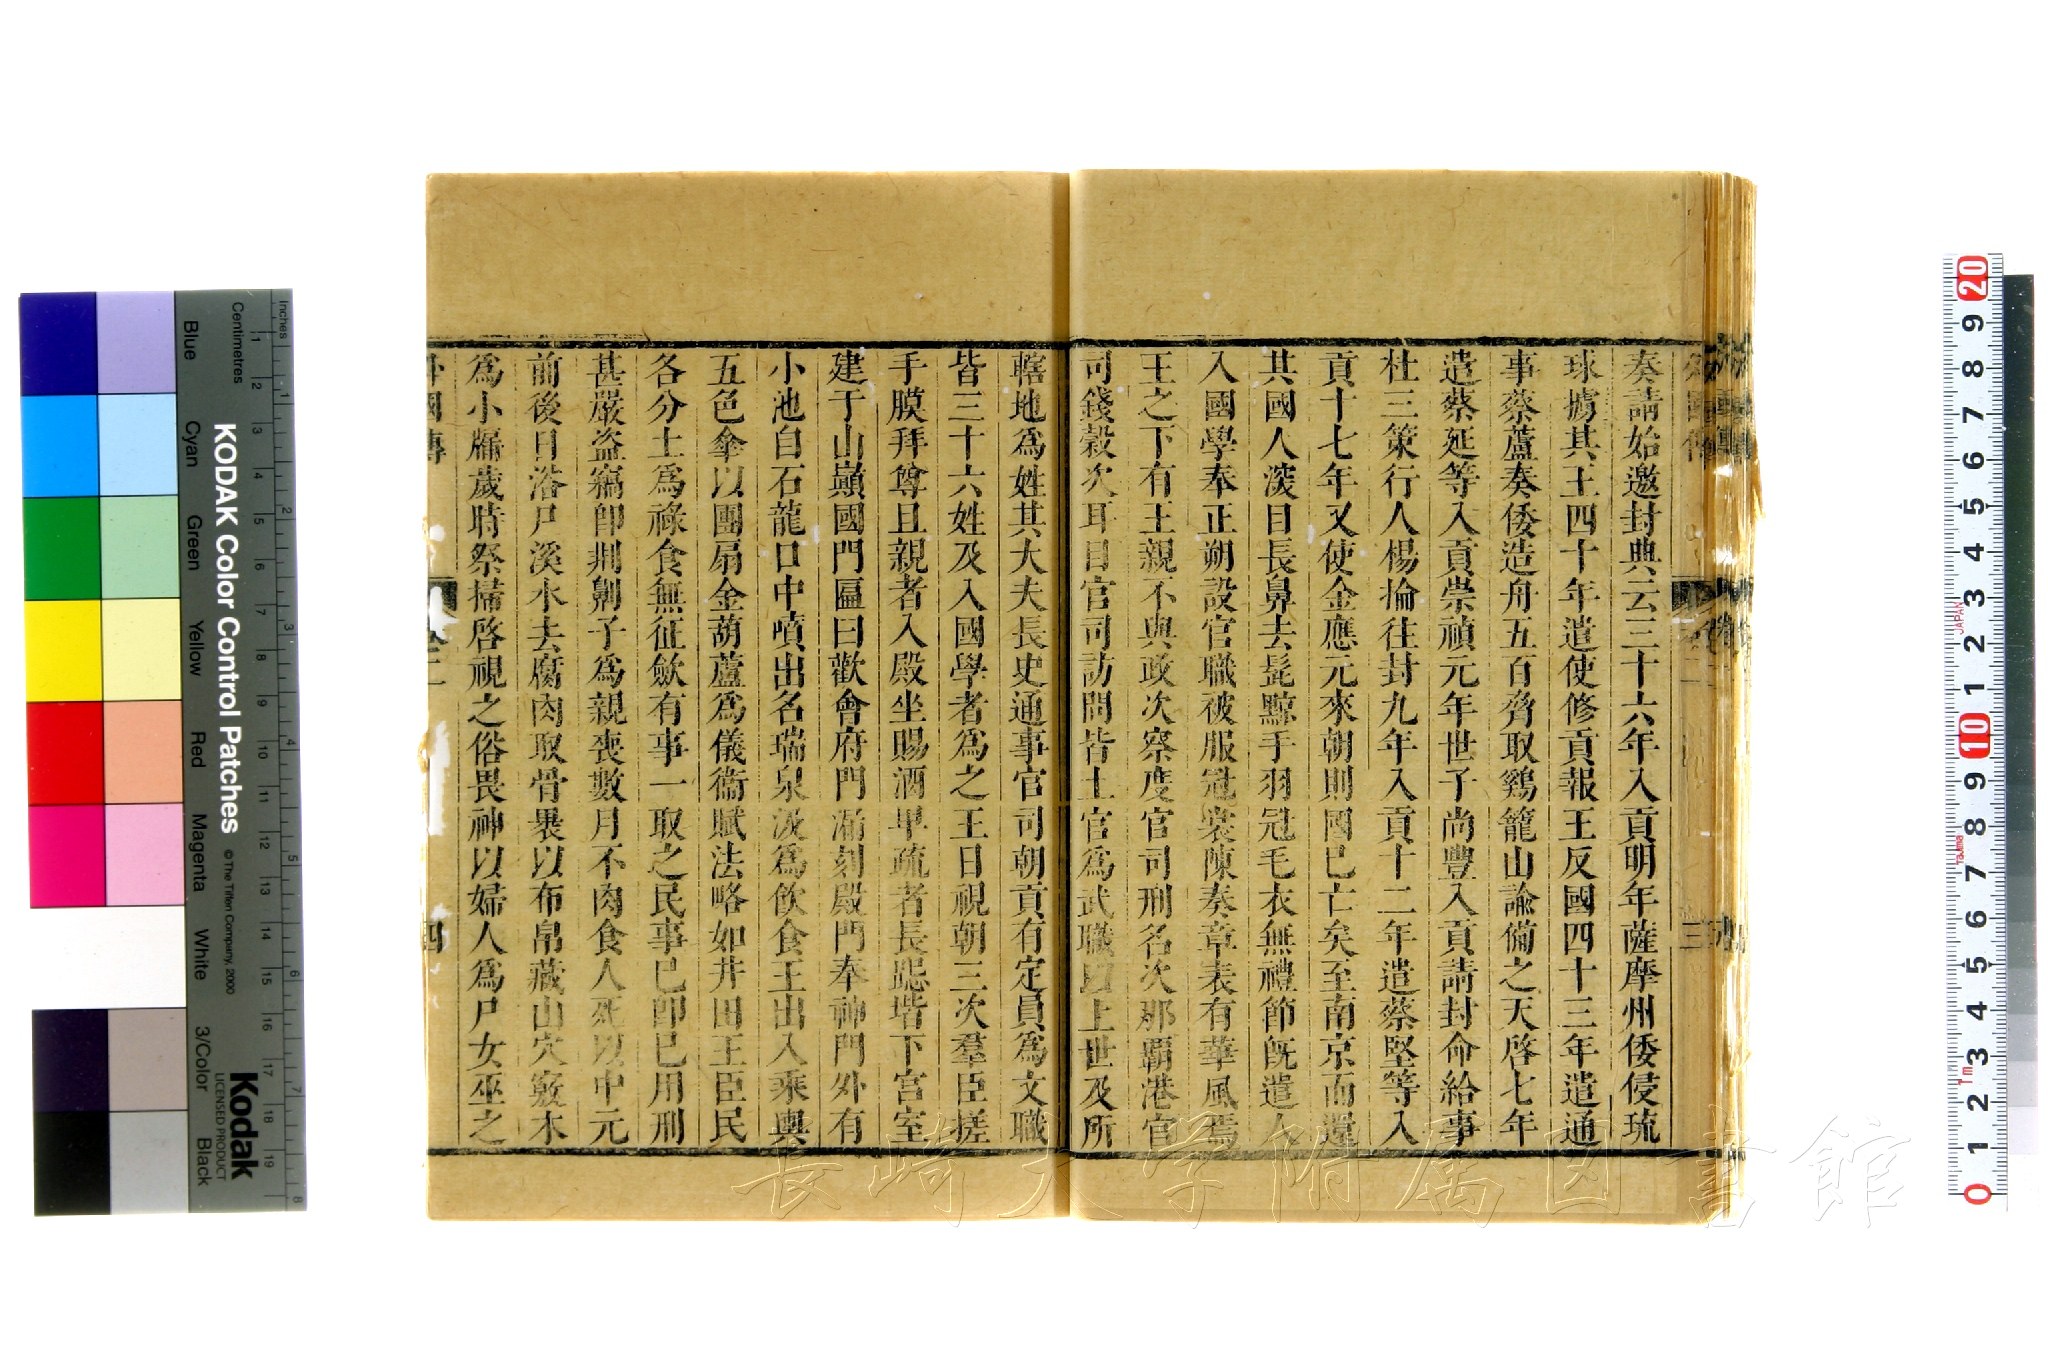 奏請始邀封典云三十六年入貢明年薩摩州倭侵琉
球擄其王四十年遣使修貢報王反國四十三年遣通
事蔡蘆奏倭造舟五百艘取鷄籠山諭備之天啓七年
遣蔡延等入貢崇禎元年世子尚豐入貢請封命給事
杜三策行人楊掄往封九年入貢十二年遣蔡堅等入
貢十七年又使金應元來朝則國已亡矣至南京而還
其國人深目長鼻去髭黥手羽冠毛衣無禮節旣遣人
入國學奉正朔設官職被服冠裳陳奏章表有華風焉
王之下有王親不與政次察度官司刑名次那霸港官
司錢穀次耳目官司訪問皆土官爲武職以上世及所
轄地爲姓其大夫長史通事官司朝貢有定員爲文職
皆三十六姓及入國學者爲之王日視朝三次羣臣搓
手膜拜尊且親者入殿坐賜酒卑疏者長跽堦下宮室
建于山巔國門匾曰歡會府門漏刻殿門奉神門外有
小池白石龍口中噴出名瑞泉汲爲飲食王出入乘輿
五色傘以團扇金葫蘆爲儀衞賦法略如井田王臣民
各分土爲祿食無征歛有事一取之民事已卽已用刑
甚嚴盗竊卽刖劓子爲親喪數月不肉食人死以中元
前後日浴尸溪水去腐肉取骨裹以布帛藏山穴竅木
爲小牖歲時祭掃啓視之俗畏神以婦人爲尸女巫之
外國傳
卷二
四
KODAK Color Control Patches
© The Tiffen Company, 2000
Kodak
LICENSED PRODUCT
Inches
Centimetres
Blue
Cyan
Green
Yellow
Red
Magenta
White
3/Color
Black
長崎大学附属図書館